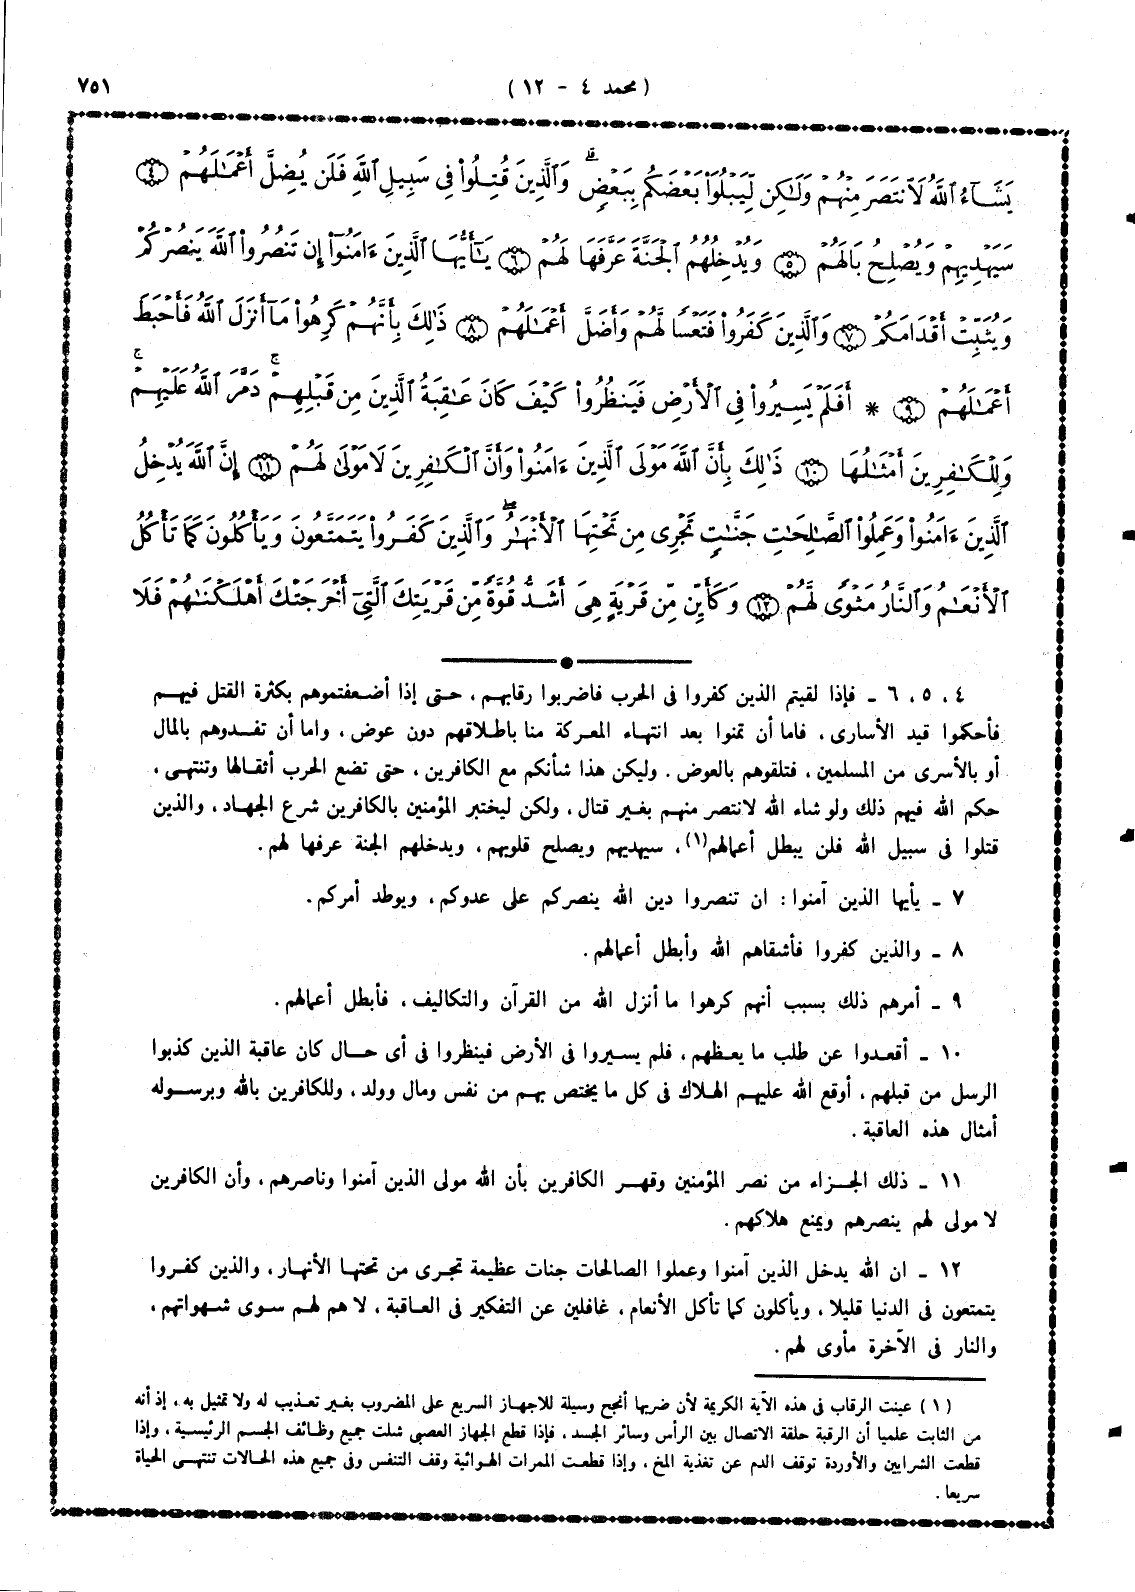 (محمد ٤ - ١٢)
٧٥١
يَشَآءُ ٱللَّهُ لَٱنتَصَرَ مِنْهُمْ وَلَٰكِن لِّيَبْلُوَا۟ بَعْضَكُم بِبَعْضٍ ۗ وَٱلَّذِينَ قُتِلُوا۟ فِى سَبِيلِ ٱللَّهِ فَلَن يُضِلَّ أَعْمَٰلَهُمْ ﴿٤﴾
سَيَهْدِيهِمْ وَيُصْلِحُ بَالَهُمْ ﴿٥﴾ وَيُدْخِلُهُمُ ٱلْجَنَّةَ عَرَّفَهَا لَهُمْ ﴿٦﴾ يَٰٓأَيُّهَا ٱلَّذِينَ ءَامَنُوٓا۟ إِن تَنصُرُوا۟ ٱللَّهَ يَنصُرْكُمْ
وَيُثَبِّتْ أَقْدَامَكُمْ ﴿٧﴾ وَٱلَّذِينَ كَفَرُوا۟ فَتَعْسًا لَّهُمْ وَأَضَلَّ أَعْمَٰلَهُمْ ﴿٨﴾ ذَٰلِكَ بِأَنَّهُمْ كَرِهُوا۟ مَآ أَنزَلَ ٱللَّهُ فَأَحْبَطَ
أَعْمَٰلَهُمْ ﴿٩﴾ * أَفَلَمْ يَسِيرُوا۟ فِى ٱلْأَرْضِ فَيَنظُرُوا۟ كَيْفَ كَانَ عَٰقِبَةُ ٱلَّذِينَ مِن قَبْلِهِمْ ۚ دَمَّرَ ٱللَّهُ عَلَيْهِمْ ۖ
وَلِلْكَٰفِرِينَ أَمْثَٰلُهَا ﴿١٠﴾ ذَٰلِكَ بِأَنَّ ٱللَّهَ مَوْلَى ٱلَّذِينَ ءَامَنُوا۟ وَأَنَّ ٱلْكَٰفِرِينَ لَا مَوْلَىٰ لَهُمْ ﴿١١﴾ إِنَّ ٱللَّهَ يُدْخِلُ
ٱلَّذِينَ ءَامَنُوا۟ وَعَمِلُوا۟ ٱلصَّٰلِحَٰتِ جَنَّٰتٍ تَجْرِى مِن تَحْتِهَا ٱلْأَنْهَٰرُ ۖ وَٱلَّذِينَ كَفَرُوا۟ يَتَمَتَّعُونَ وَيَأْكُلُونَ كَمَا تَأْكُلُ
ٱلْأَنْعَٰمُ وَٱلنَّارُ مَثْوًى لَّهُمْ ﴿١٢﴾ وَكَأَيِّن مِّن قَرْيَةٍ هِىَ أَشَدُّ قُوَّةً مِّن قَرْيَتِكَ ٱلَّتِىٓ أَخْرَجَتْكَ أَهْلَكْنَٰهُمْ فَلَا
٤ ، ٥ ، ٦ ـ فإذا لقيتم الذين كفروا فى الحرب فاضربوا رقابهم ، حتى إذا أضعفتموهم بكثرة القتل فيهم
فأحكموا قيد الأسارى ، فاما أن تمنوا بعد انتهاء المعركة منا باطلاقهم دون عوض ، واما أن تفدوهم بالمال
أو بالأسرى من المسلمين ، فتلقوهم بالعوض . وليكن هذا شأنكم مع الكافرين ، حتى تضع الحرب أثقالها وتنتهى ،
حكم الله فيهم ذلك ولو شاء الله لانتصر منهم بغير قتال ، ولكن ليختبر المؤمنين بالكافرين شرع الجهاد ، والذين
قتلوا فى سبيل الله فلن يبطل أعمالهم(١) ، سيهديهم ويصلح قلوبهم ، ويدخلهم الجنة عرفها لهم .
٧ ـ يأيها الذين آمنوا : ان تنصروا دين الله ينصركم على عدوكم ، ويوطد أمركم .
٨ ـ والذين كفروا فأشقاهم الله وأبطل أعمالهم .
٩ ـ أمرهم ذلك بسبب أنهم كرهوا ما أنزل الله من القرآن والتكاليف ، فأبطل أعمالهم .
١٠ ـ أقعدوا عن طلب ما يعظهم ، فلم يسيروا فى الأرض فينظروا فى أى حال كان عاقبة الذين كذبوا
الرسل من قبلهم ، أوقع الله عليهم الهلاك فى كل ما يختص بهم من نفس ومال وولد ، وللكافرين بالله وبرسوله
أمثال هذه العاقبة .
١١ ـ ذلك الجزاء من نصر المؤمنين وقهر الكافرين بأن الله مولى الذين آمنوا وناصرهم ، وأن الكافرين
لا مولى لهم ينصرهم ويمنع هلاكهم .
١٢ ـ ان الله يدخل الذين آمنوا وعملوا الصالحات جنات عظيمة تجرى من تحتها الأنهار ، والذين كفروا
يتمتعون فى الدنيا قليلا ، ويأكلون كما تأكل الأنعام ، غافلين عن التفكير فى العاقبة ، لا هم لهم سوى شهواتهم ،
والنار فى الآخرة مأوى لهم .
(١) عينت الرقاب فى هذه الآية الكريمة لأن ضربها أنجح وسيلة للاجهاز السريع على المضروب بغير تعذيب له ولا تمثيل به ، إذ أنه
من الثابت علميا أن الرقبة حلقة الاتصال بين الرأس وسائر الجسد ، فإذا قطع الجهاز العصبى شلت جميع وظائف الجسم الرئيسية ، وإذا
قطعت الشرايين والأوردة توقف الدم عن تغذية المخ ، وإذا قطعت الممرات الهوائية وقف التنفس وفى جميع هذه الحالات تنتهى الحياة
سريعا .